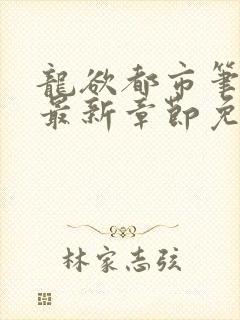 龍欲都市筆
最新章節免
林家志弦